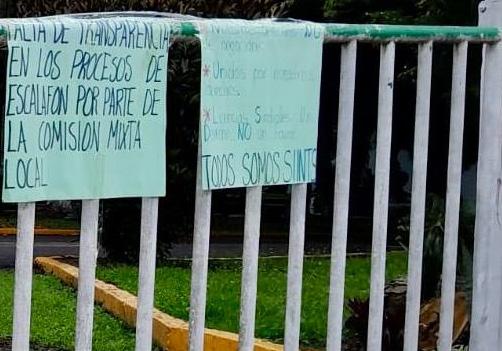 FALTA DE TRANSPARENCIA
EN LOS PROCESOS DE
ESCALAFON POR PARTE DE
LA COMISION MIXTA
LOCAL
NO
* Unidos por nuestros
* Licencias Sindicales Un
NO un favor
TODOS SOMOS SUNTS